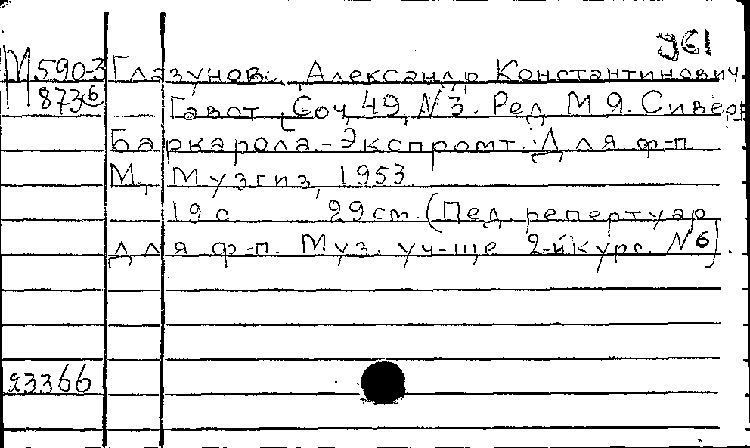 961
М590-3 Глазунов, Александр Константинович.
873б Гавот, Соч. 49, № 3. Ред. М. Я. Сивер
Баркарола-Экспромт. Для ф-п.
М., Музгиз, 1953.
19 с. 29 см. (Пед. репертуар
для ф-п. Муз. уч-ще 2-й курс. № 6).
23366